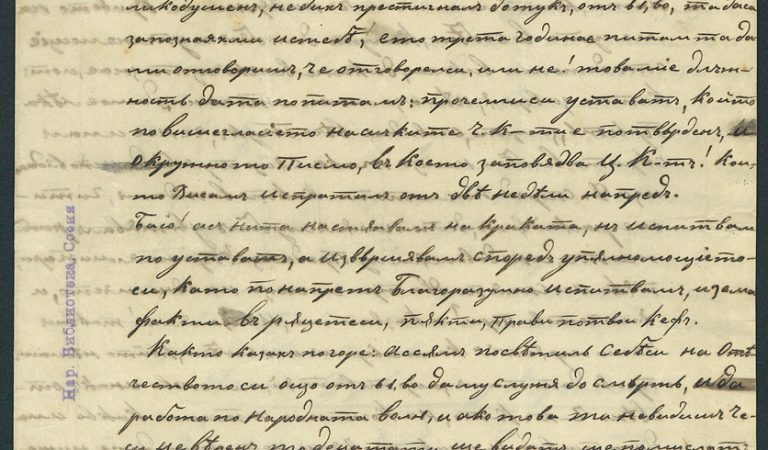 ликодушенъ, не бихъ престигналъ дотукъ, отъ 61, во, та даса
запознаяхли и стебѣ, ето трета година е питамъ та да
ми отговоришъ, че отговорелси, или не! това мie длъж-
ность да та попитамъ: прочемписи уставатъ, който
по вишегласiето на сичките Ч. К-тие потвърденъ, и
Окружното Писмо, въ Което заповядва Ц. К-тъ! Кои-
то Висамъ испратилъ отъ двѣ недѣли напредъ.
Байо! асъ нита настѫпвамъ на краката, нъ испитвам
по уставатъ, а извършявамъ според упялномощiето-
си, като по напретъ Благоразумно испитвамъ, изема
факти въ ряцетеси, пякти, Прави потвои кефъ.
Както казахъ погоре: Ассямъ посвѣтилъ Себѣси на Оте
чеството си още отъ 61, во да му служя до смърть, и да
работа по народната воля, и ако това та невидишъ че-
видатъ
Нар. Библиотека, София